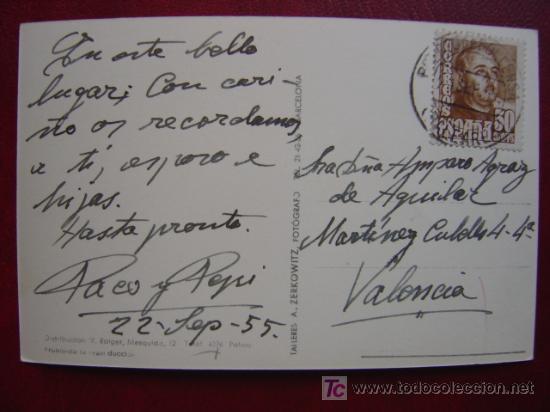 En este bello
lugar; Con cari-
ño os recordamos
a ti, esposo e
hijas.
Hasta pronto.
Paco y Pepi
22-Sep-55.
Distribución: V. Roiget, Mezquida, 12 Teléf. 4376 Palma
Prohibida la reproducción
TALLERES A. ZERKOWITZ, FOTÓGRAFO BARCELONA
CORREOS
ESPAÑA
50
Sra Dña Amparo Agraz
de Aguilar
Martínez Cubells 4-4ª
Valencia
TC
www.todocoleccion.net